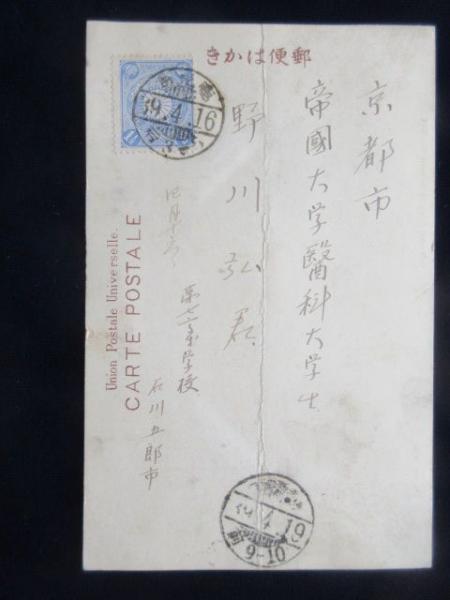 郵便はかき
京都市
帝國大学醫科大学生
野川弘君
四月十六日
第七高等学校
石川五郎市
Union Postale Universelle.
CARTE POSTALE
39.4.16
39.4.19
9-10